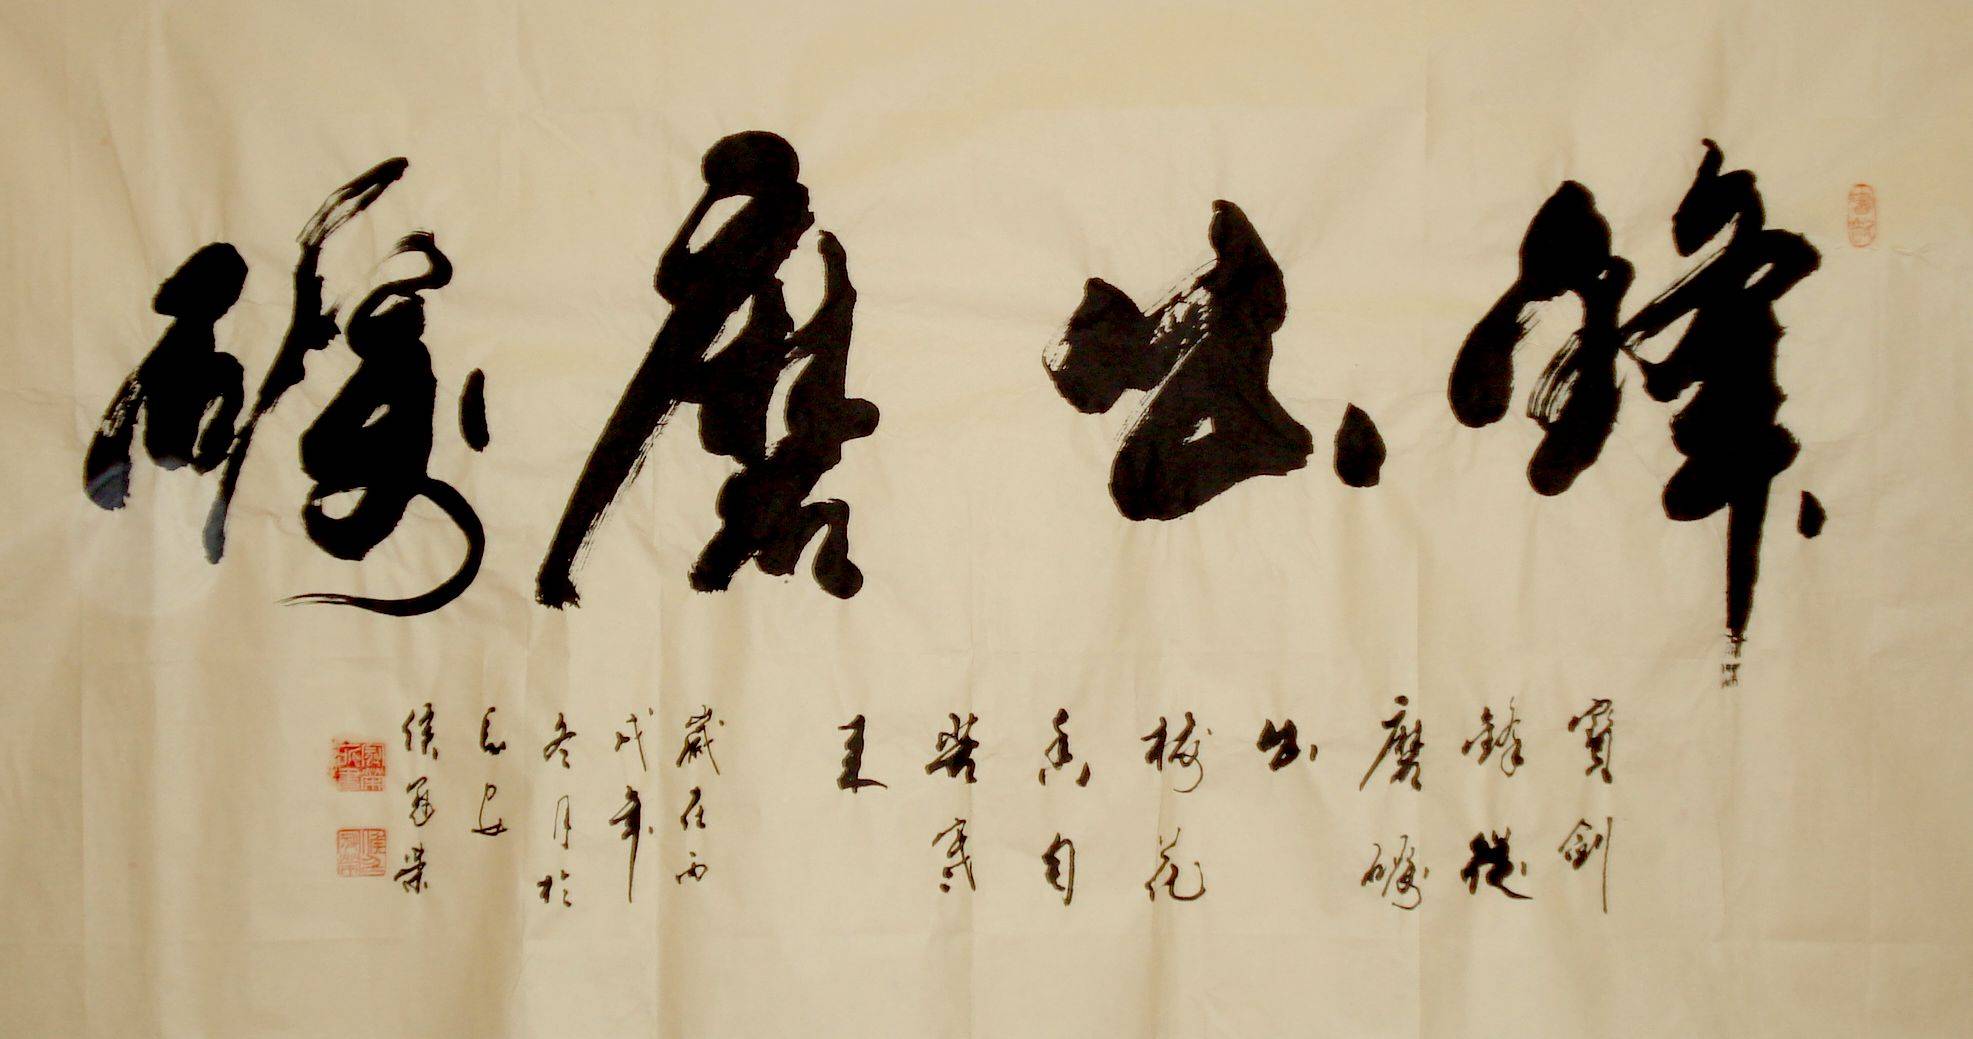 鋒出磨礪
寶劍
鋒從
磨礪
出
梅花
香自
苦寒
来
歲在丙
戌年
冬月於
长安
侯冠榮